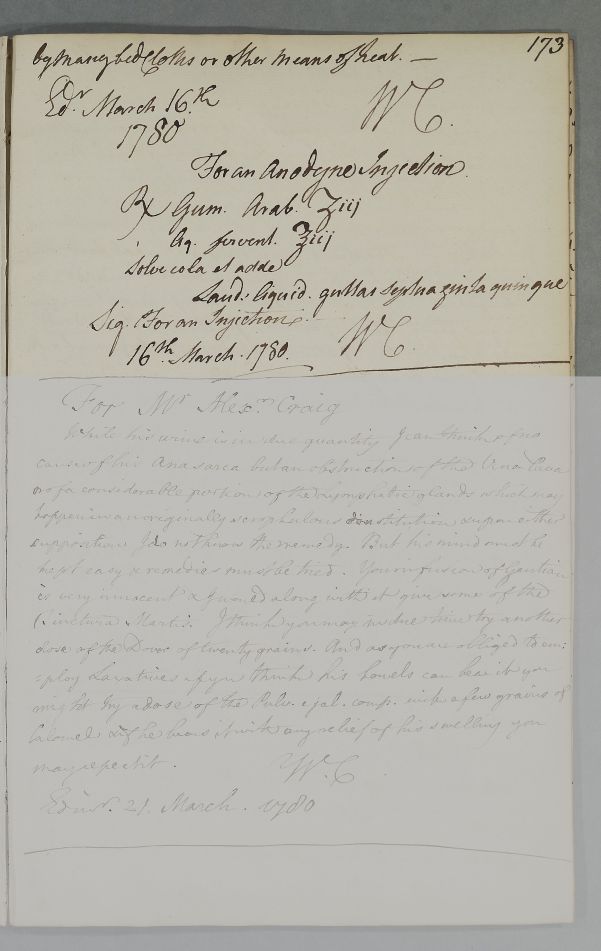 173
by many bed Cloths or other means of heat. —
Edr. March 16th
1780
WC.
For an Anodyne Injection.
Rx Gum. Arab. ʒiij
Aq. fervent. ℥iij
Solve cola et adde
Laud. liquid. guttas septuaginta quinque
Sig. For an Injection.
16th March. 1780.
WC.
For Mr Alexr. Craig
While his urine is in due quantity I can think of no
cause of his Anasarca but an obstruction of the Vena Cava
or of a considerable portion of the lymphatic glands which may
happen in an originally scrophulous constitution & upon either
supposition I do not know the remedy. But his mind must be
kept easy & remedies must be tried. Your infusion of Gentian
is very innocent & I would along with it give some of the
Tinctura Martis. I think you may induce him try another
dose of the Dover of twenty grains. And as you are obliged to em:
:ploy Laxatives if you think his bowels can bear it you
might try a dose of the Pulv. e jal. comp. with a few grains of
Calomel & if he bears it with any relief of his swelling you
may repeat it.
W.C
Edinr. 21. March. 1780